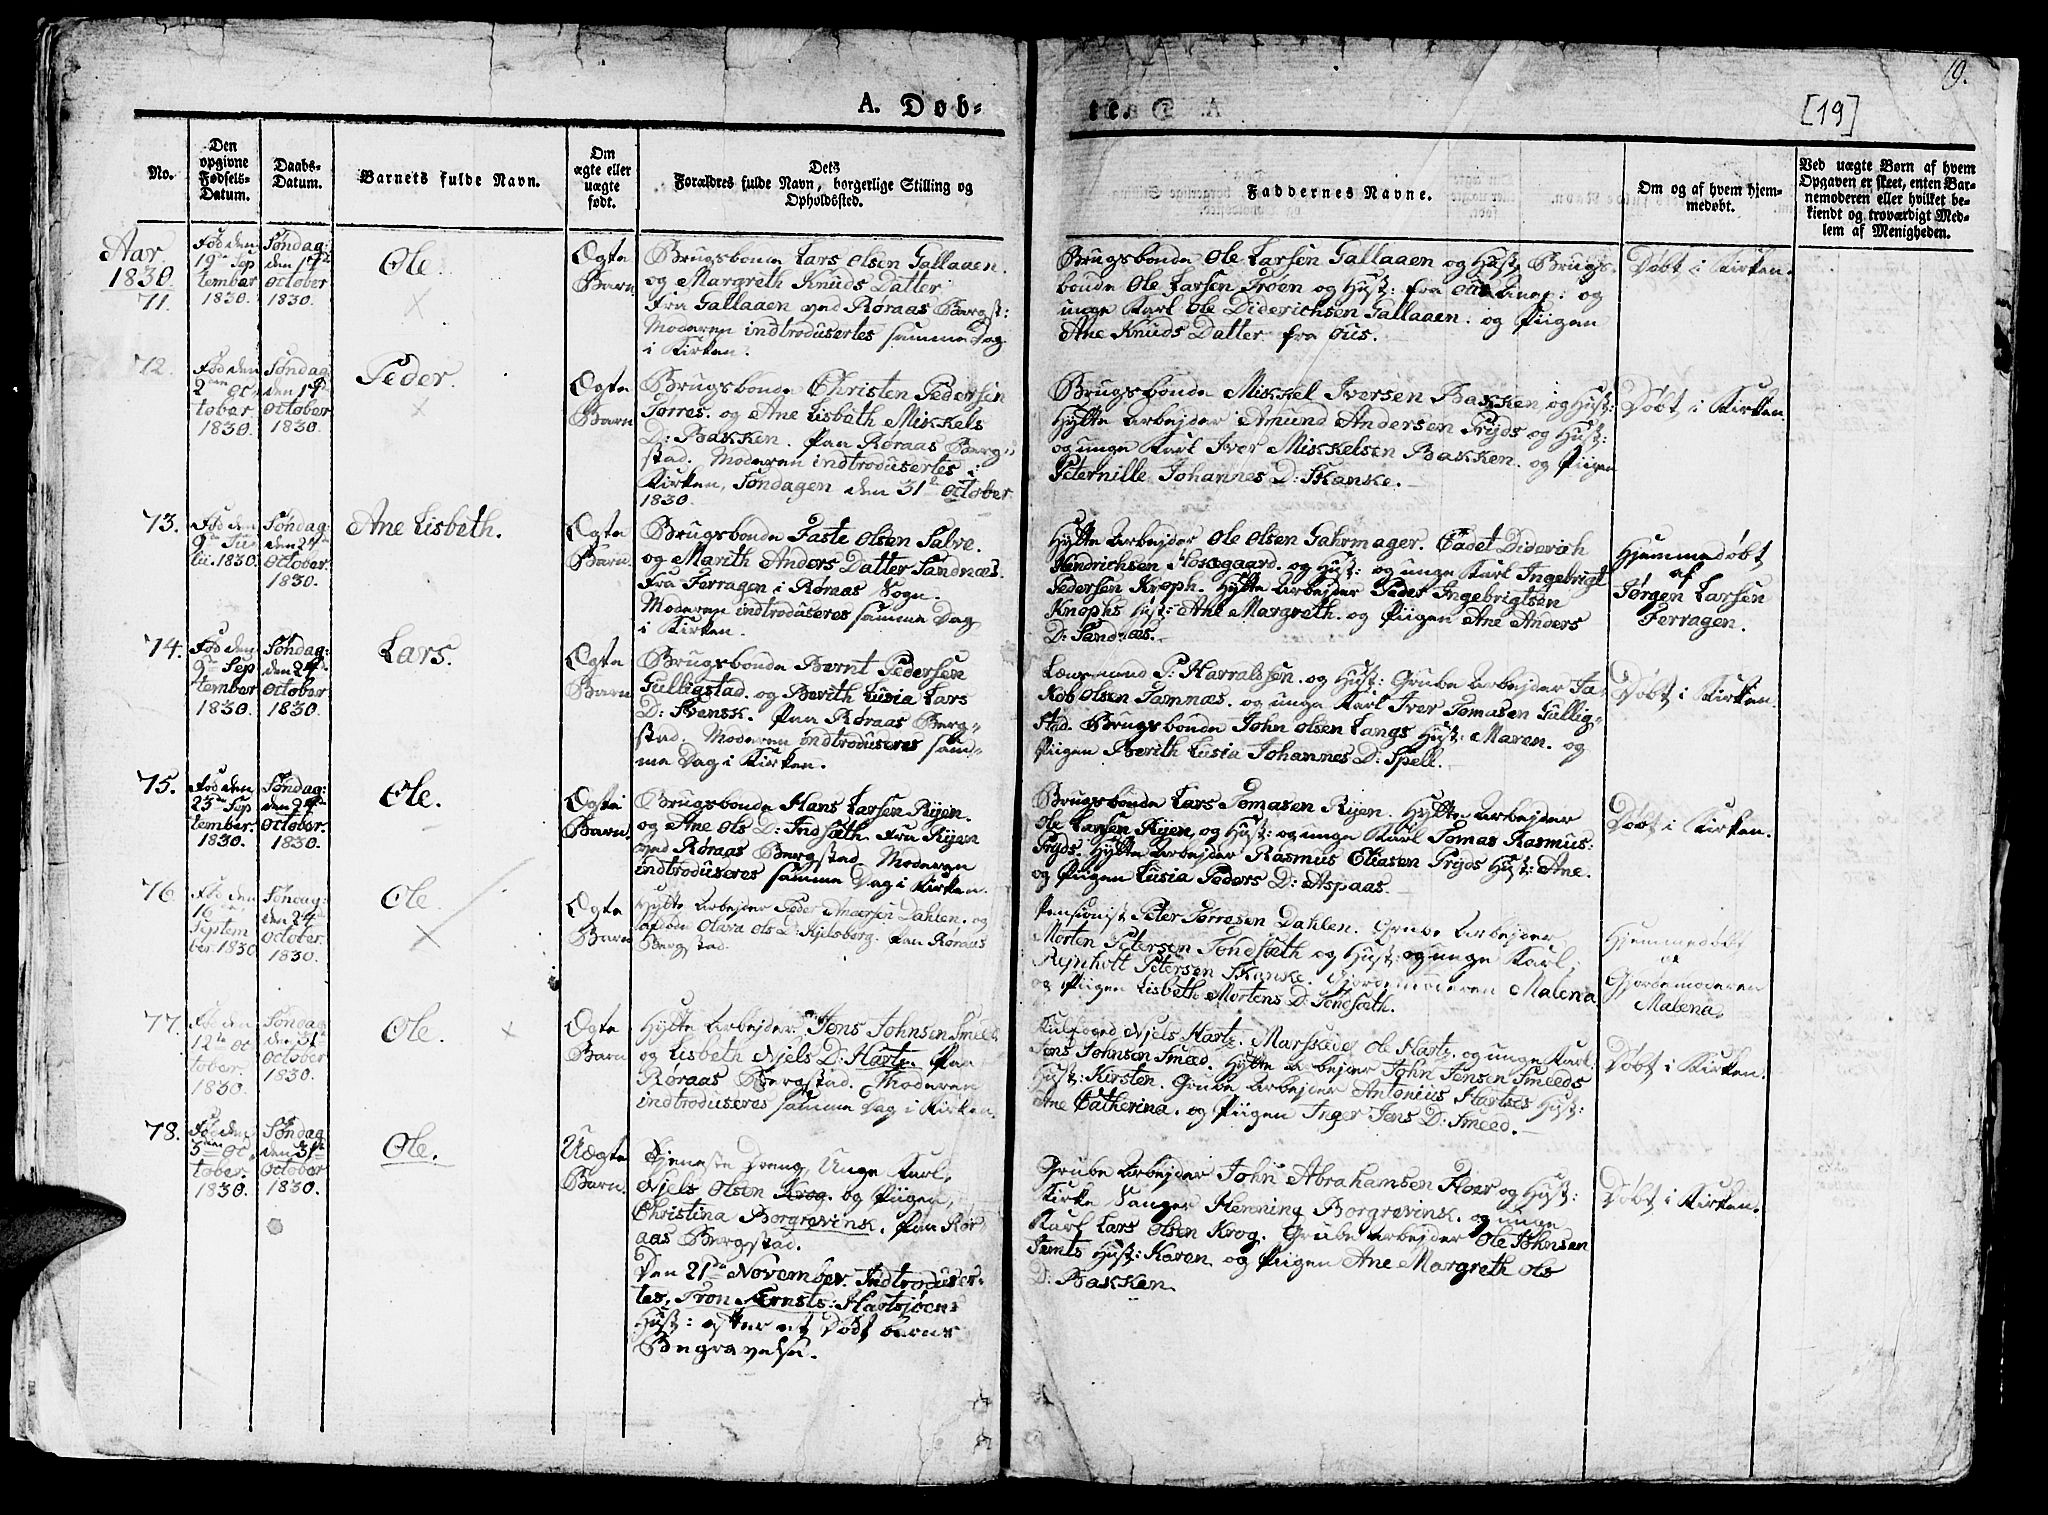 19.
[19]
A. Døb-
te.
No.
Den opgivne Fødsels-Datum.
Daabs-Datum.
Barnets fulde Navn.
Om ægte eller uægte født.
Dets Forældres fulde Navn, borgerlige Stilling og Opholdssted.
Faddernes Navne.
Om og af hvem hjem-medøbt.
Ved uægte Børn af hvem Opgaven er skeet, enten Bar-nemoderen eller hvilket be-kiendt og troværdigt Med-lem af Menigheden.
Aar
1830.
71.
Fød den
19de Sep
tember
1830.
Søndag:
den 17de
October
1830.
Ole.
Ægte
Barn
Brugsbonde Lars Olsen Gallaaen.
og Margreth Knuds Datter
fra Gallaaen ved Røraas Bergst:
Moderen indtrodusertes samme Dag
i Kirken.
Brugsbonde Ole Larsen Gallaaen og Hust, Brugs-
bonde Ole Larsen Troen og Hust: fra og
unge Karl Ole Diderichsen Gallaaen. og Piigen
Ane Knuds Datter fra Ous.
Døbt i Kirken.
72.
Fød den
2den Oc
tober
1830.
Søndag
den 17de
October
1830.
Peder.
Ægte
Barn
Brugsbonde Christen Pedersen
Torres. og Ane Lisbeth Mikkels
D: Bakken. Paa Røraas Berg-
stad. Moderen indtrodusertes i
Kirken, Søndagen den 31te October
1830.
Brugsbonde Mikkel Iversen Bakken og Hust:
Hytte Arbejder Amund Andersen Pryds og Hust:
og unge Karl Iver Mikkelsen Bakken. og Piigen
Peternille Johannes D: Skanke.
Døbt i Kirken
73.
Fød den
9de Ju
lii. 1830.
Søndag:
den 24de
October.
1830.
Ane Lisbeth.
Ægte
Barn
Brugsbonde Faste Olsen Salve.
og Marith Anders Datter Sandnæs.
fra Ferragen i Røraas Sogn.
Moderen indtroduseres samme Dag
i Kirken.
Hytte Arbejder Ole Olsen Gahrmager. Cadet Diderich
Hendrichsen Hosegaard. og Hust: og unge Karl Ingebrigt
Pedersen Knoph. Hytte Arbejder Peder Ingebrigtsen
Knophs Hust: Ane Margreth. og Piigen Ane Anders
D: Sandnæs.
Hjemmedøbt
af
Jørgen Larsen
Ferragen.
74.
Fød den
9de Sep
tember
1830.
Søndag:
den 24de
October
1830.
Lars.
Ægte
Barn
Brugsbonde Bernt Pedersen
Gulligstad. og Berith Lusia Lars
D: Svensk. Paa Røraas Berg-
stad. Moderen indtroduseres sam-
me Dag i Kirken.
Lænsmand P: Harraldsen. og Hust: Grube Arbejder Ja-
kob Olsen Tamnæs. og unge Karl Iver Tomasen Gullig-
stad. Brugsbonde John Olsen Langs Hust: Maren. og
Piigen Berith Lusia Johannes D: Spell.
Døbt i Kirken.
75.
Fød den
23de Sep
tember.
1830.
Søndag
den 24de
October.
1830.
Ole.
Ægte
Barn.
Brugsbonde Hans Larsen Ryen.
og Ane Ols D: Indsæth. fra Ryen
ved Røraas Bergstad. Moderen
indtroduseres samme Dag i Kirken.
Brugsbonde Lars Tomasen Ryen. Hytte Arbejder
Ole Larsen Ryen, og Hust: og unge Karl Tomas Rasmus:
Pryds. Hytte Arbejder Rasmus Eliasen Pryds Hust: Ane.
og Piigen Lusia Peders D: Aspaas.
Døbt i Kirken.
76.
Fød den
16
Septem
ber. 1830
Søndag:
den 24de
October.
1830.
Ole.
Ægte
Barn
Hytte Arbejder Peder Andersen Dahlen. og
afdøde Olava Ols D: Kjelsberg. Paa Røraas
Bergstad.
Pensionist Peter Torresen Dahlen. Grube Arbejder
Morten Petersen Tondsæth og Hust: og unge Karl;
Reinholt Petersen Skanke. Gjordemoderen Malena
og Piigen Lisbeth Mortens D: Tondsæth.
Hjemmedøbt
af
Gjordemoderen
Malena.
77.
Fød den
12te Oc
tober.
1830.
Søndag
den 31te
October
1830.
Ole.
Ægte
Barn
Hytte Arbejder. Jens Johnsen Smeed
og Lisbeth Njels D: Hartz. Paa
Røraas Bergstad. Moderen
indtroduseres samme Dag i Kirken.
Kulfoged Njels Hartz. Marskeder Ole Hartz. og unge Karl
Jens Johnsen Smeed. Hytte Arbejder John Jensen Smeeds
Hust: Kirsten. Grube Arbejder Antonius Hartses Hust:
Ane Catherina. og Piigen Inger Jens D: Smeed.
Døbt i Kirken.
78.
Fød den
5den Oc
tober.
1830.
Søndag
den 31te
October
1830.
Ole.
Uægte
Barn.
Tjeneste Dreng, Unge Karl,
Njels Olsen Krog. og Piigen,
Christina Borgrevink. Paa Rør
aas Bergstad.
Den 21de November. Indtroduser-
tes, Tron Ernsts: Hartsjøens
Hust: efter et Dødt barns
Begravelse.
Grube Arbejder John Abrahamsen Floer og Hust:
Kirke Sanger Henning Borgrevink. og unge
Karl Lars Olsen Krog. Grube Arbejder Ole Johnsen
Jemts Hust: Karen og Piigen Ane Margreth Ols
D: Bakken
Døbt i Kirken.